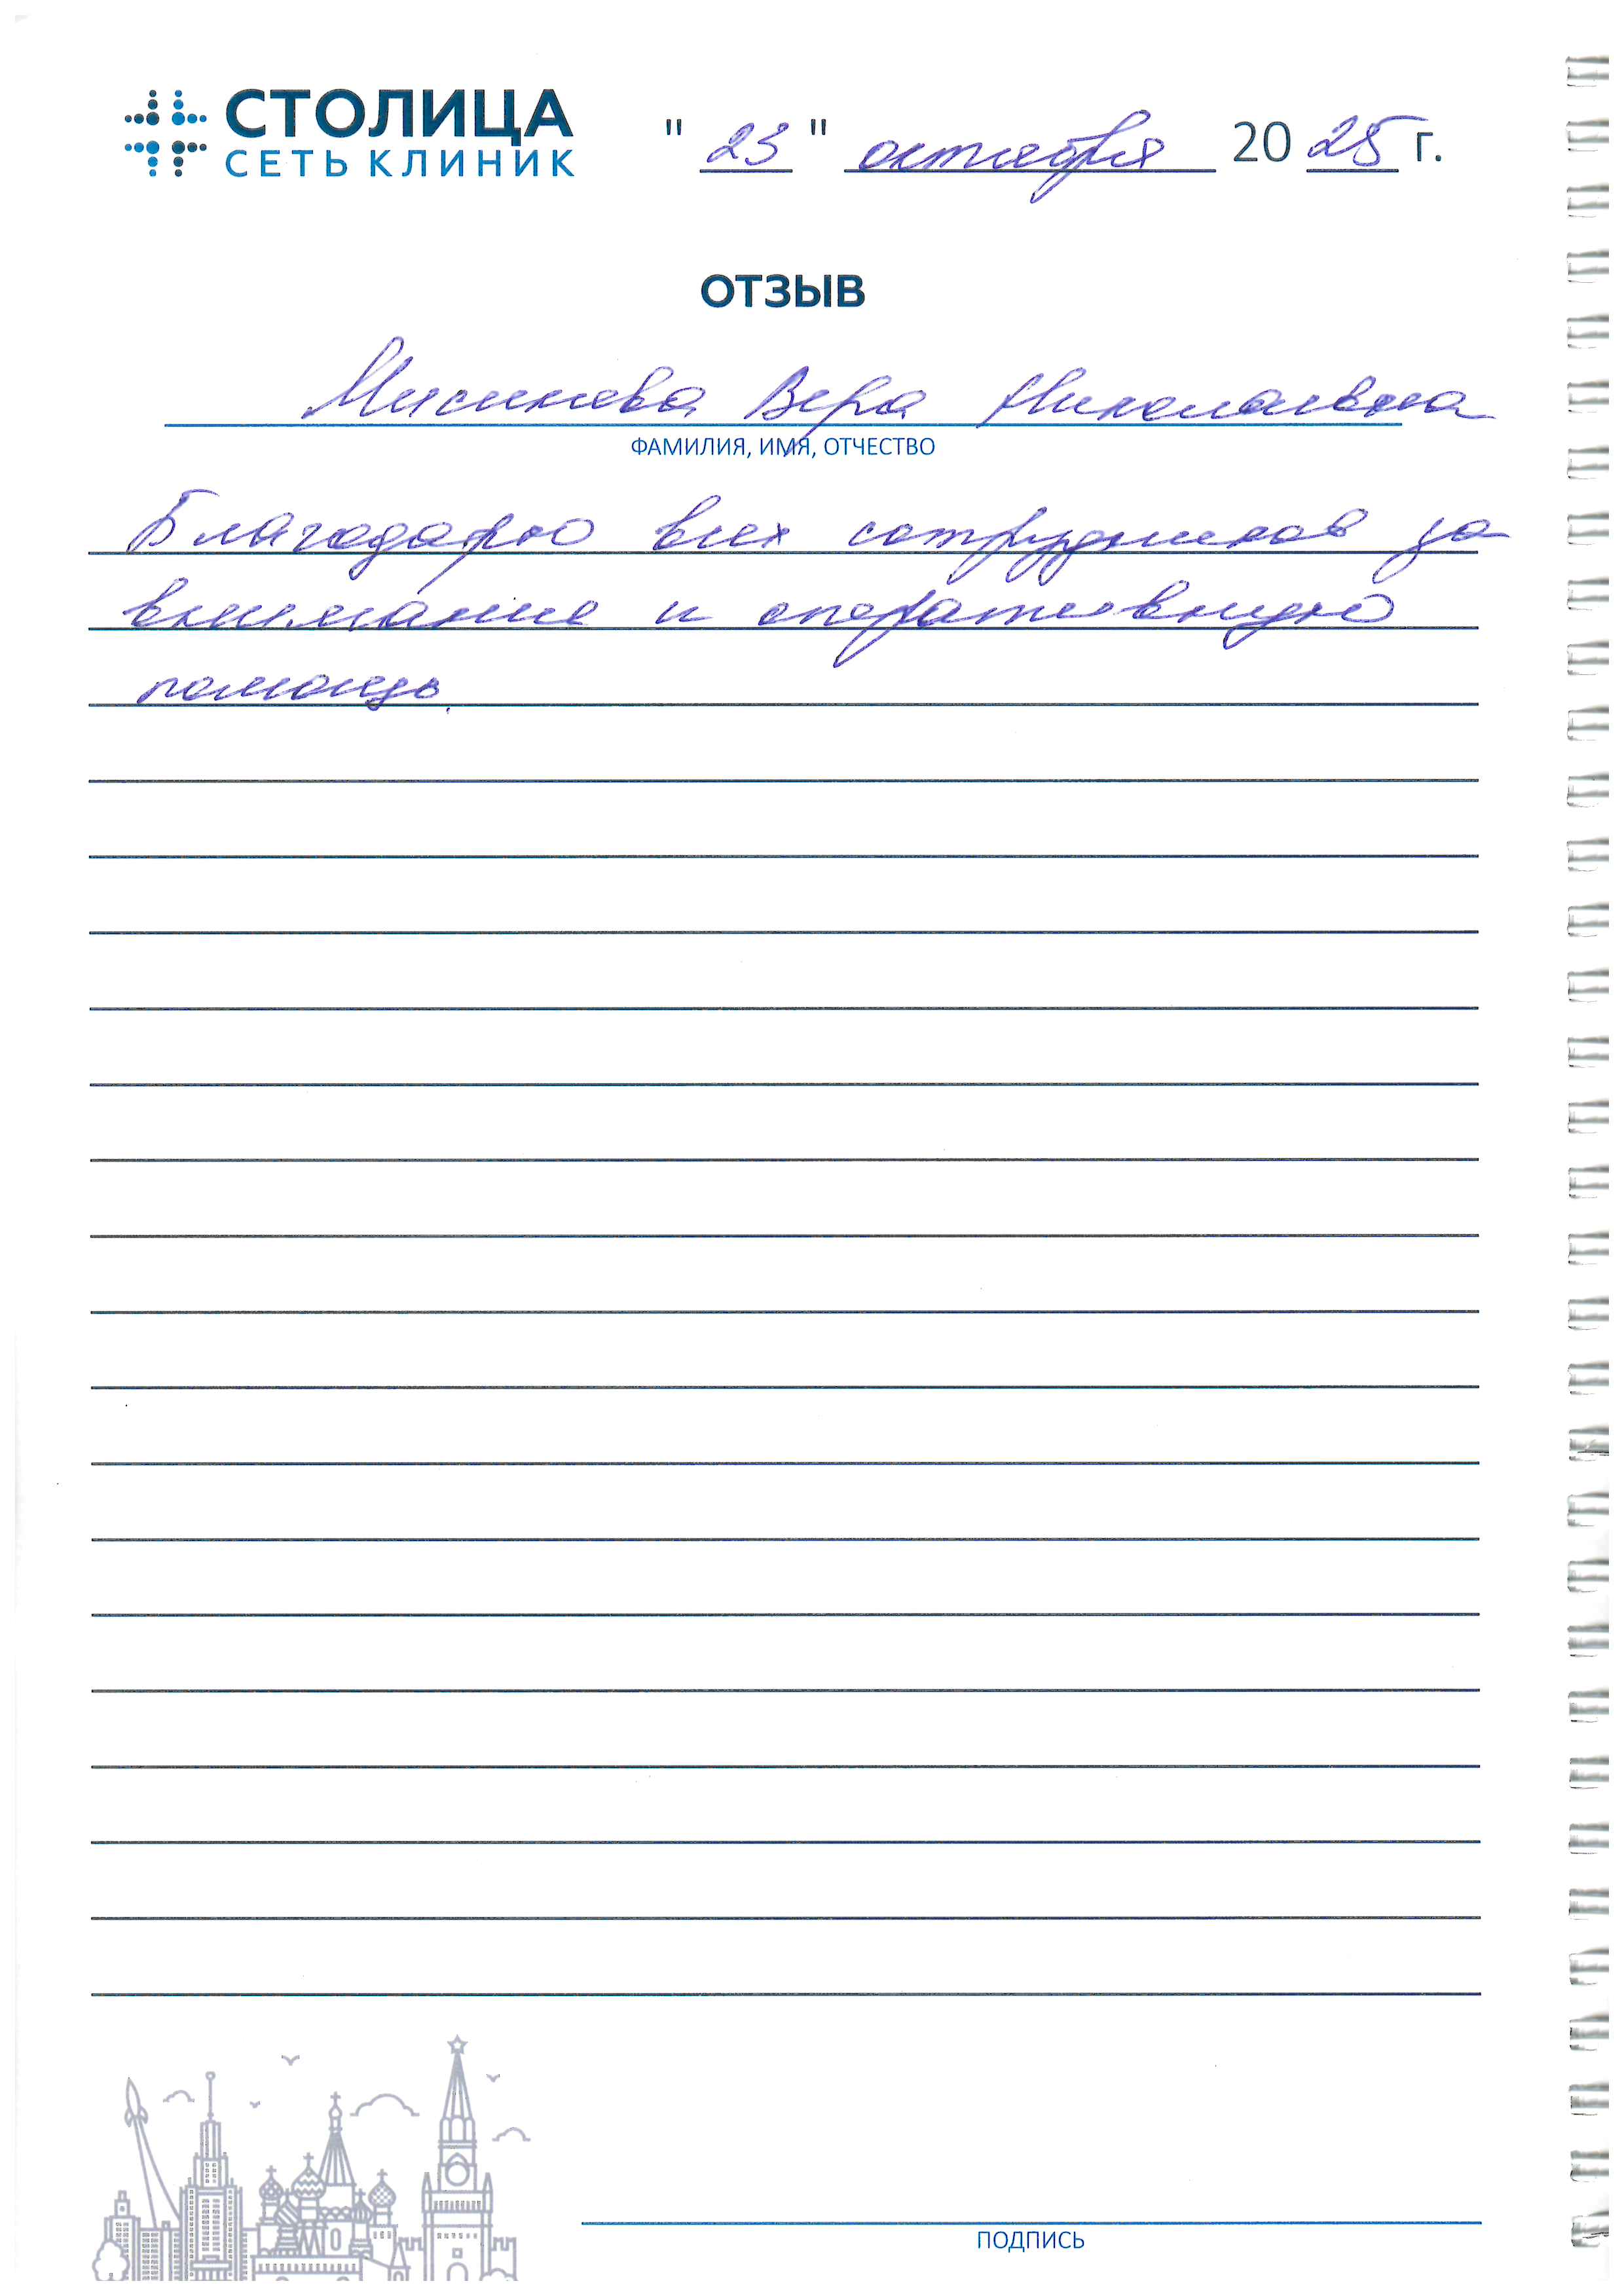 СТОЛИЦА
СЕТЬ КЛИНИК
" 23 " октября 20 25 г.
ОТЗЫВ
Вера Николаевна
ФАМИЛИЯ, ИМЯ, ОТЧЕСТВО
Благодарю всех сотрудников за
внимание и оперативную
помощь.
ПОДПИСЬ